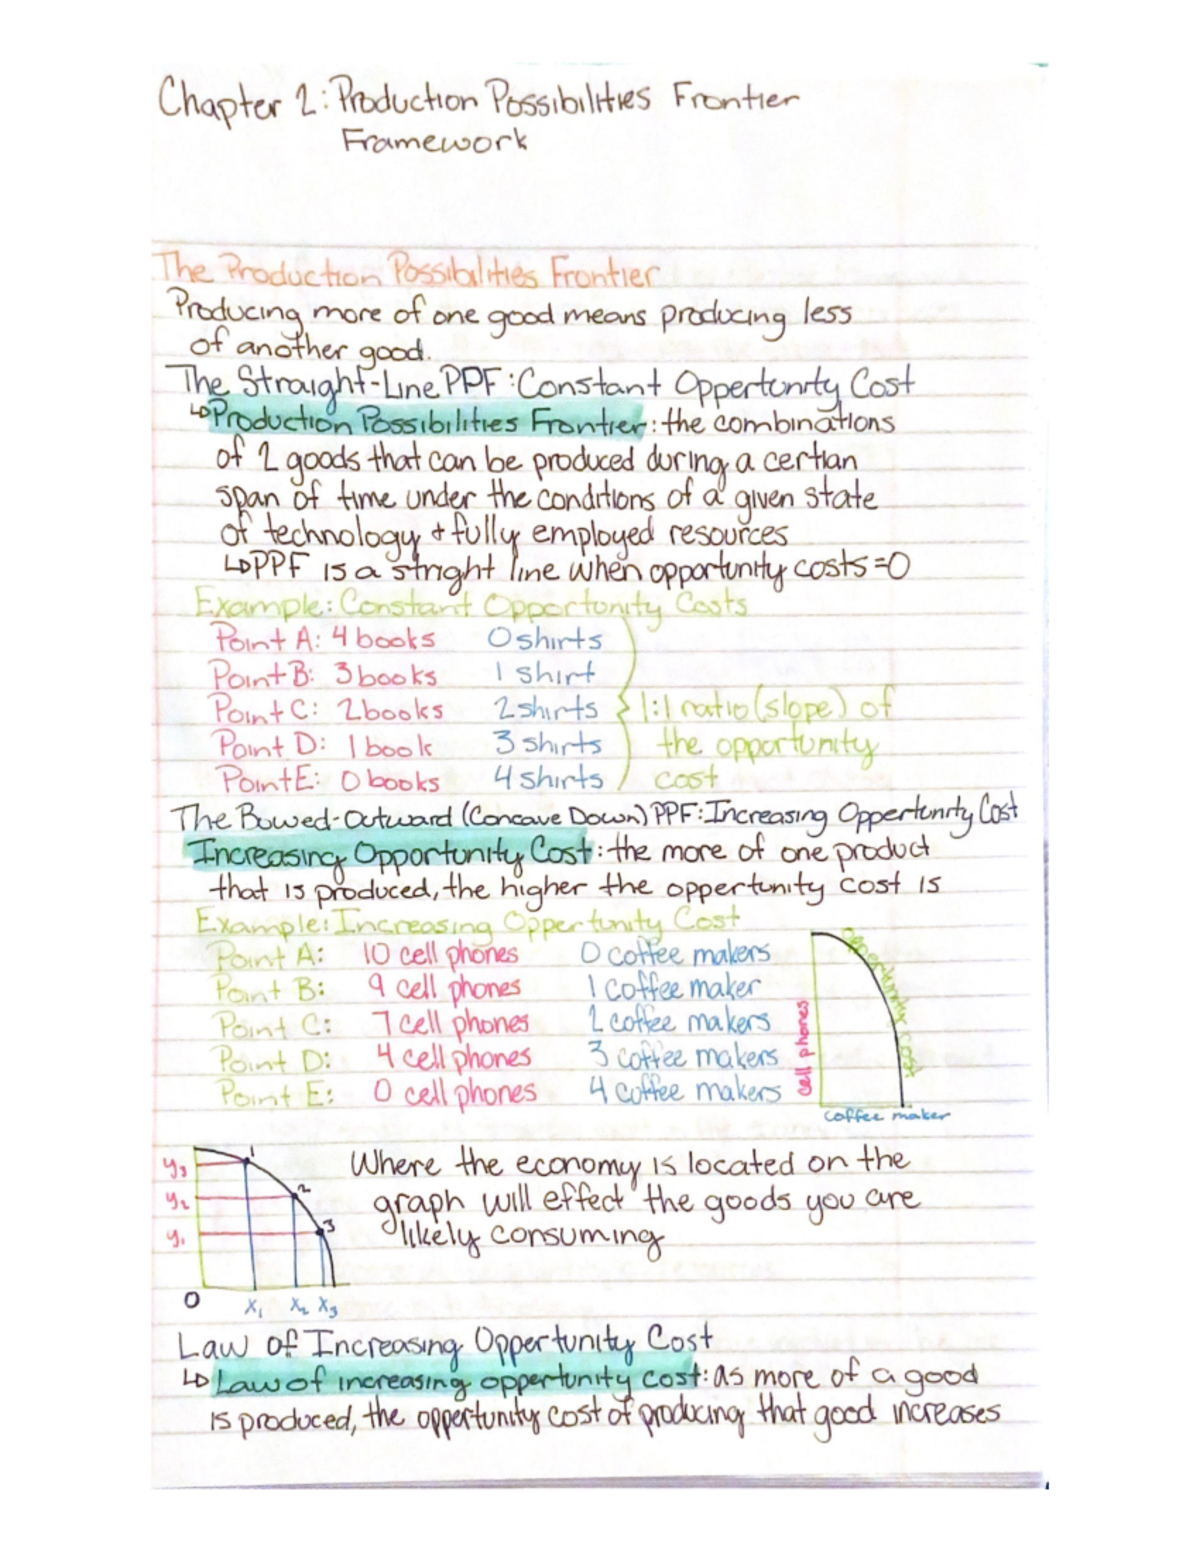 Chapter 2: Production Possibilities Frontier
Framework
The Production Possibilities Frontier
Producing more of one good means producing less
of another good.
The Straight-Line PPF: Constant Oppertunity Cost
↳Production Possibilities Frontier: the combinations
of 2 goods that can be produced during a certian
span of time under the conditions of a given state
of technology + fully employed resources
↳PPF is a stright line when opportunity costs=0
Example: Constant Opportunity Costs
Point A: 4 books 0 shirts
Point B: 3 books 1 shirt
Point C: 2 books 2 shirts 1:1 ratio (slope) of
Point D: 1 book 3 shirts the opportunity
Point E: 0 books 4 shirts cost
The Bowed-Outward (Concave Down) PPF: Increasing Oppertunity Cost
Increasing Opportunity Cost: the more of one product
that is produced, the higher the oppertunity cost is
Example: Increasing Oppertunity Cost
Point A: 10 cell phones 0 coffee makers
Point B: 9 cell phones 1 coffee maker
Point C: 7 cell phones 2 coffee makers
Point D: 4 cell phones 3 coffee makers
Point E: 0 cell phones 4 coffee makers
cell phones
oppertunity cost
coffee maker
y3 1
y2 2
y1 3
0 x1 x2 x3
Where the economy is located on the
graph will effect the goods you are
likely consuming
Law of Increasing Oppertunity Cost
↳Law of increasing oppertunity cost: as more of a good
is produced, the opportunity cost of producing that good increases